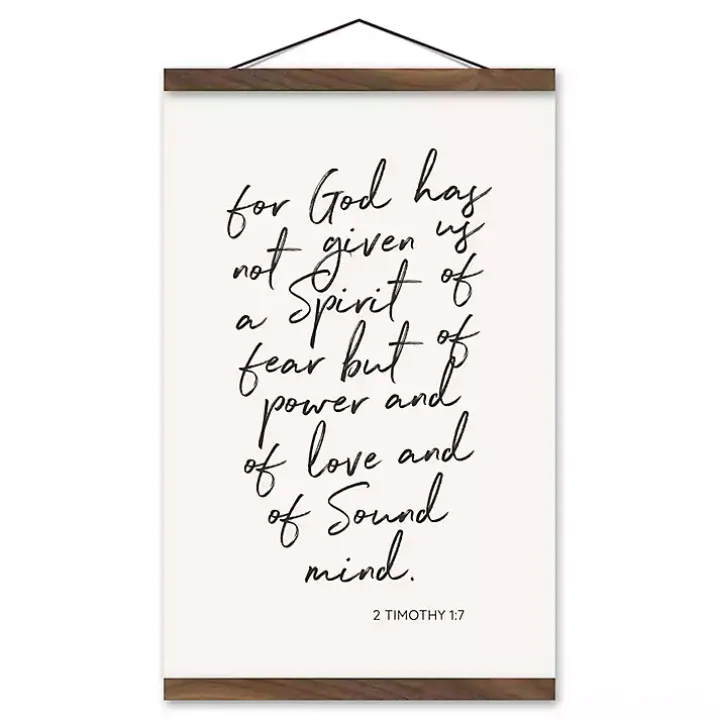 for God has
not given us
a Spirit of
fear but of
power and
of love and
of Sound
mind.
2 TIMOTHY 1:7